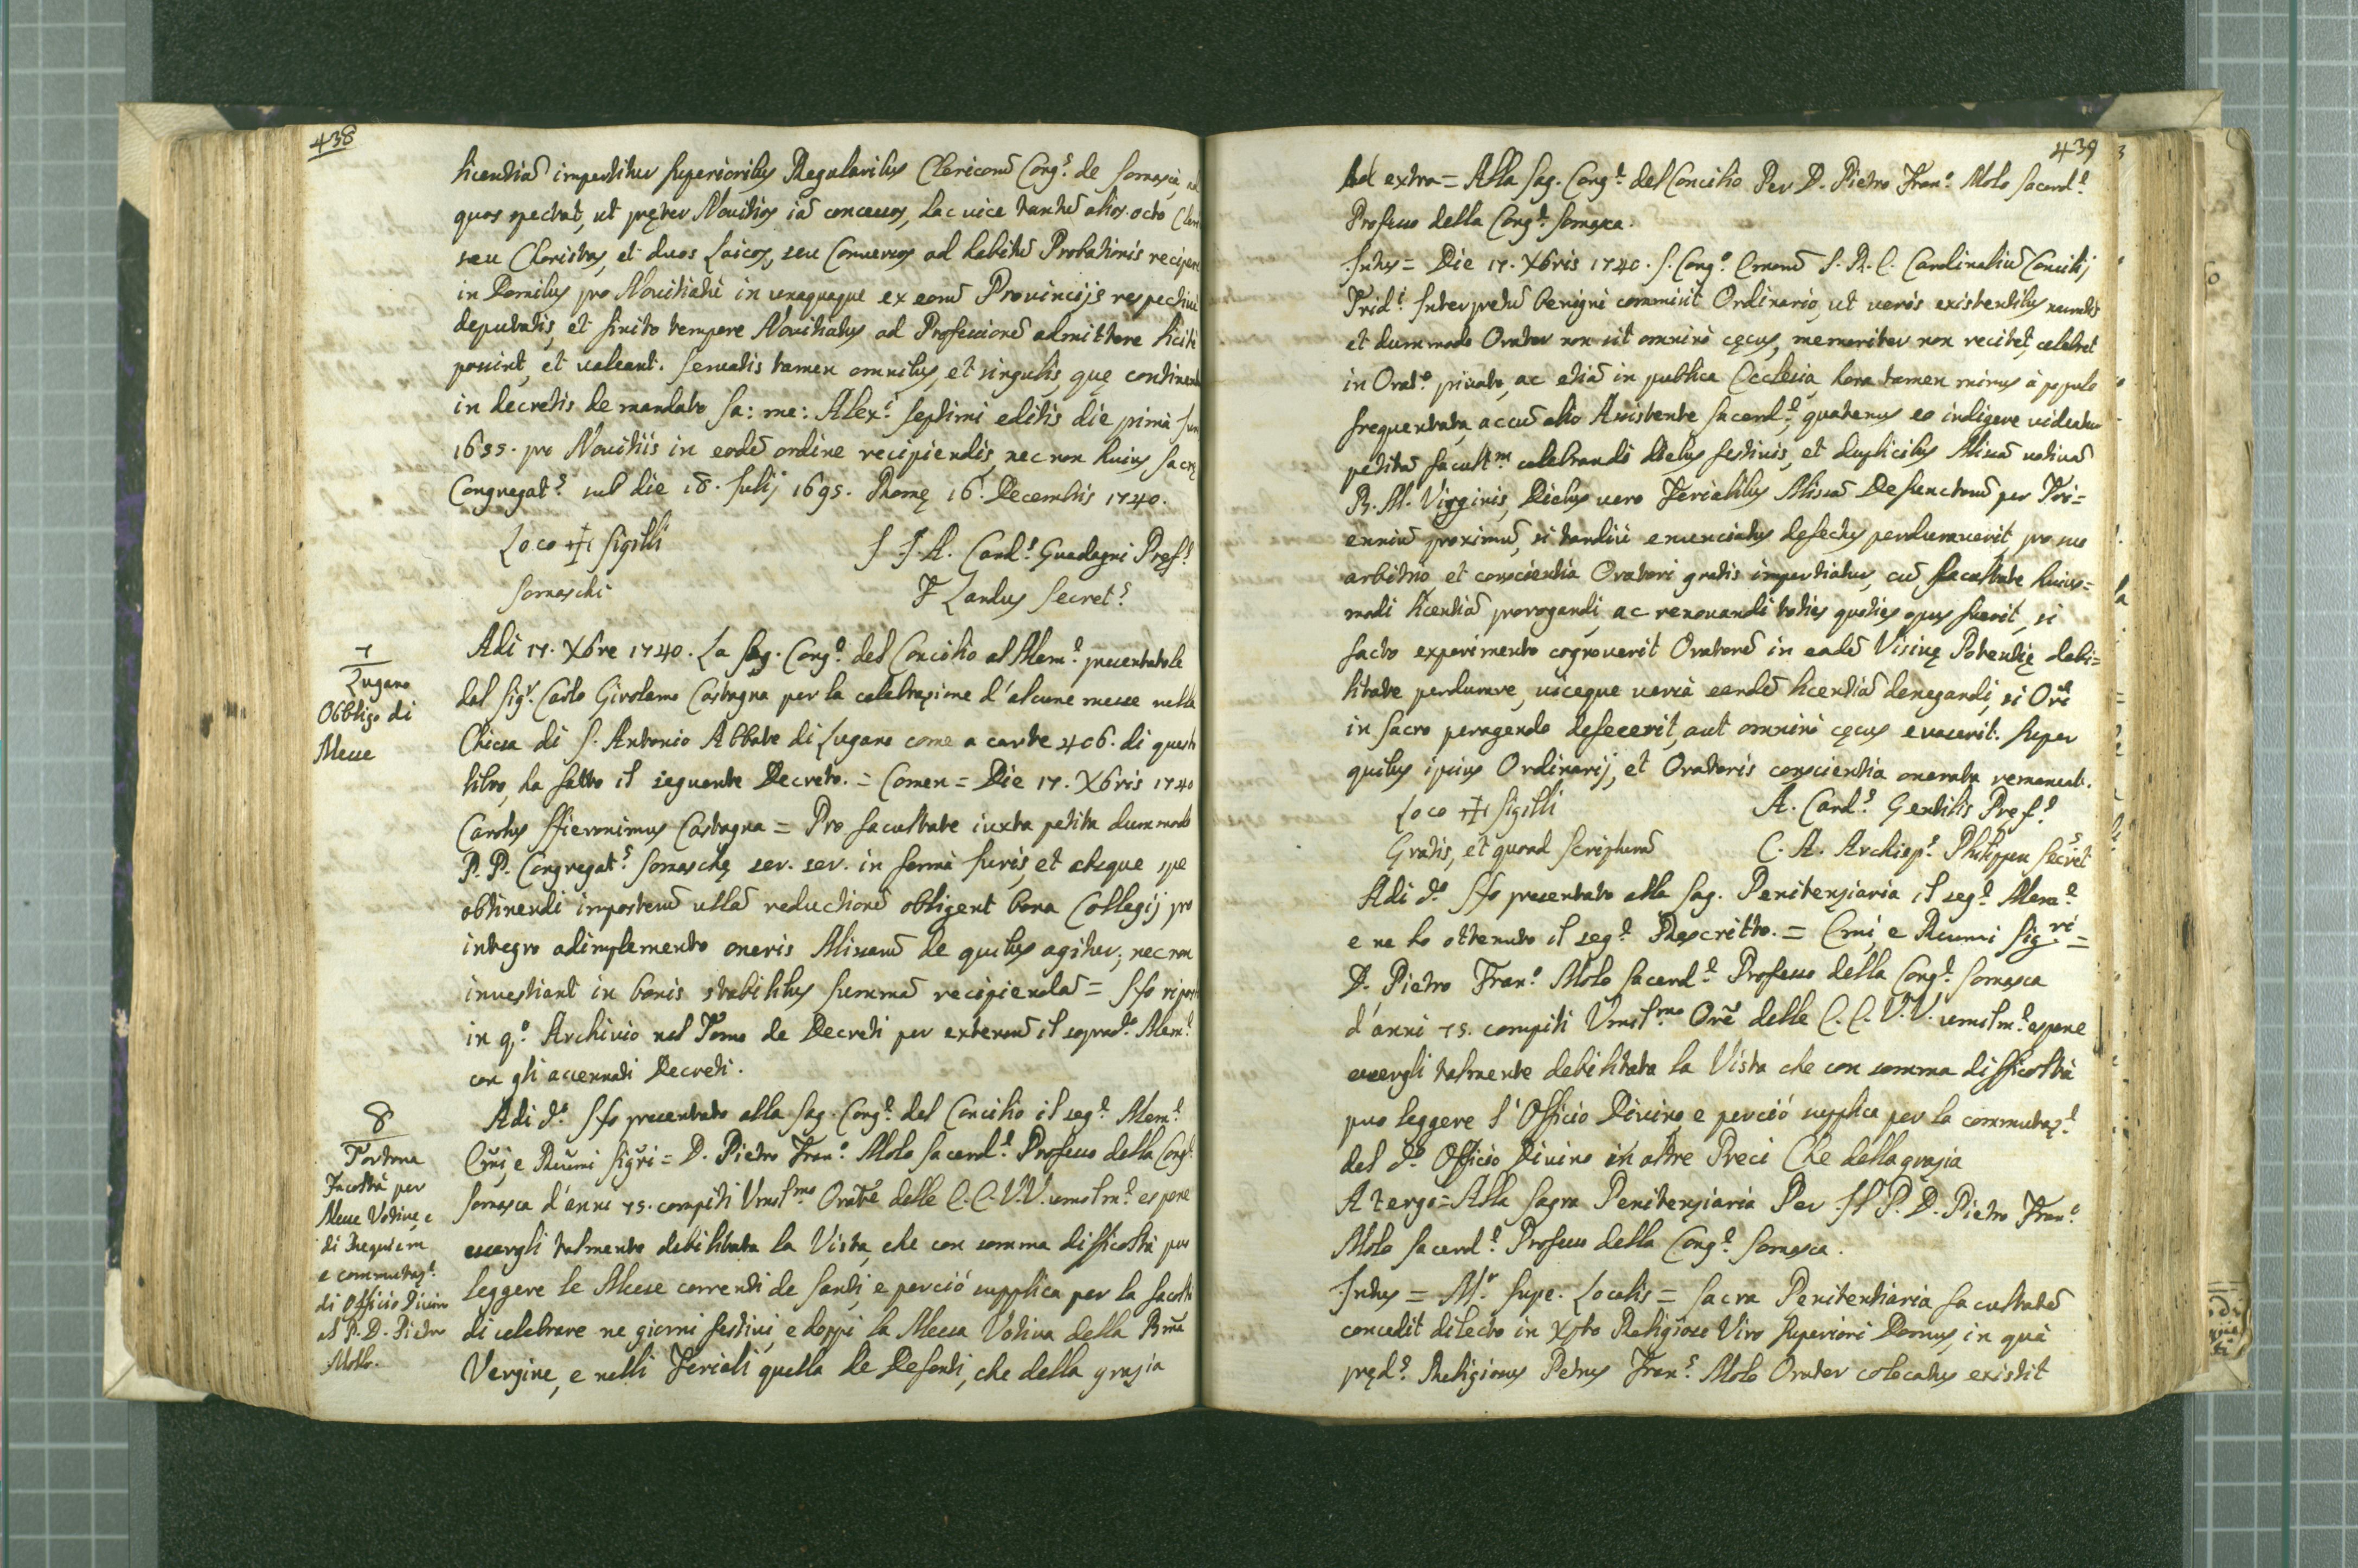 438
licentiam̃ impertitur Superioribus Regularibus Clericorũ Cong.ⁿ de Somascha ad
quos spectat, ut pręter Novitios iã concessos, hac vice tantũ alios octo Cleri
seu Choristas, et duos Laicos, seu Conversos ad habitũ Probationis recipere
in Domibus pro Novitiatu in unaquaque ex eorũ Provincijs respectivè
deputatis, et finito tempore Novitiatus ad Professionẽ admittere licitè
possint, et valeant. Servatis tamen omnibus, et singulis, quę continentur
in decretis de mandato fa: me: Alex.ⁱ Septimi editis die primà Jun
1655. pro Novitiis in eodẽ ordine recipiendis, nec non huius Sacrę
Congregat.ˢ sub die 18. Julij 1695. Romę 16. Decembris 1740.
Loco ☩ Sigilli
J. J. A. Card.ˢ Guadagni Pręf.ˢ
Somaschi
F. Landus Secret.ˢ
7
Lugano
Obbligo di
Messe
Adi 17. Xbre 1740. La Sag. Cong.ᵉ del Concilio al Mem.ᵉ presentatole
dal Sig.ʳ Carlo Girolamo Castagna per la celebrazione d'alcune messe nella
Chiesa di S. Antonio Abbate di Lugano come a carte 406. di questo
libro, ha fatto il seguente Decreto. = Comen = Die 17. Xbris 1740
Carolus Hieronimus Castagna = Pro facultate iuxta petita dummodo
P. P. Congregat.ˢ Somaschę ser. ser. in formà Juris, et absque spe
obtinendi imposterũ ullã reductionẽ obligent bona Collegij pro
integro adimplemento oneris Missarũ de quibus agitur; nec non
investiant in bonis stabilibus summã recipiendã = Si è riposto
in q.º Archivio nel Tomo de Decreti per extensũ il soprad.º Mem.ᵉ
con gli accennati Decreti.
8
Tortona
Facoltà per
Messe Votive, e
di Requiem
e commutaz.ᵉ
di Officio Divino
al P. D. Pietro
Molo.
Adi d.º Si è presentato alla Sag. Cong.ᵉ del Concilio il seg.ᵉ Mem.ᵉ
Em̃i, e Reṽmi Sig̃ri = D. Pietro Fran.º Molo Sacerd.ᵉ Professo della Cong.ᵉ
Somasca d'anni 75. compiti Umil.ᵐᵒ Orat̃e delle E. E. V. V. umilm.ᵉ espone
essergli talmente debilitata la Vista, che con somma difficoltà può
leggere le Messe correnti de Santi, e perciò supplica per la facoltà
di celebrare ne giorni festivi, e doppi la Messa Votiva della Bm̃a
Vergine, e nelli Feriali quella de Defonti, che della grazia
439
Ad extra = Alla Sag. Cong.ᵉ del Concilio Per D. Pietro Fran.º Molo Sacerd.ᵉ
Professo della Cong.ᵉ Somasca.
Intus = Die 17. Xbris 1740. S. Cong.º Emorũ S. R. E. Cardinaliũ Concilij
Trid.ⁱ Interpretũ benignè commisit Ordinario, ut veris existentibus narratis
et dummodo Orator non sit omninò cęcus, memoriter non recitet, celebret
in Orat.º privato, ac etiã in publica Ecclesia, hora tamen minus à populo
frequentata, ac cũ alio Assistente Sacerd.ᵉ, quatenus eo indigere videatur
petitã facult.ᵐ celebrandi diebus festivis, et duplicibus Missã votivã
B. M. Virginis, Diebus vero Ferialibus Missã Defunctorũ per Tri=
enniũ proximũ, si tandiù enunciatus defectus perduraverit, pro suo
arbitrio et conscientia Oratori gratis impertiatur, cũ facultate huius=
modi licentiã prorogandi, ac renovandi toties quoties opus fuerit, si
facto experimento cognoverit Oratorẽ in eadẽ Visivę Potentię debi=
litate perdurare, vicequè versà eandẽ licentiã denegandi, si Or̃i
in Sacro peragendo defecerit, aut omninò cęcus evaserit. Super
quibus ipsius Ordinarij, et Oratoris conscientia onerata remaneat.
Loco ☩ Sigilli
A. Card.ˢ Gentilis Pref.ˢ
Gratis, et quoad Scripturã
C. A. Archiep.ˢ Philippen Secret.ˢ
Adi d.º Si è presentato alla Sag. Penitenziaria il seg.ᵉ Mem.ᵉ
e ne ho ottenuto il seg.ᵉ Rescritto. = Em̃i, e Reumi Sig.ʳⁱ =
D. Pietro Fran.º Molo Sacerd.ᵉ Professo della Cong.ᵉ Somasca
d'anni 75. compiti Umil.ᵐᵒ Or̃e delle E. E. V. V. umilm.ᵉ espone
essergli talmente debilitata la Vista che con somma difficoltà
può leggere l'Officio Divino, e perciò supplica per la commutaz.ᵉ
del d.º Officio Divino in altre Preci Che della grazia
A tergo = Alla Sagra Penitenziaria Per Il P. D. Pietro Fran.º
Molo Sacerd.ᵉ Professo della Cong.ᵉ Somasca.
Intus = M.ʳ Supe. Localis = Sacra Penitentiaria facultatẽ
concedit dilecto in Xp̃to Religioso Viro Superiori Domus, in quâ
pręd.ˢ Religiosus Petrus Fran.ˢ Molo Orator colocatus existit